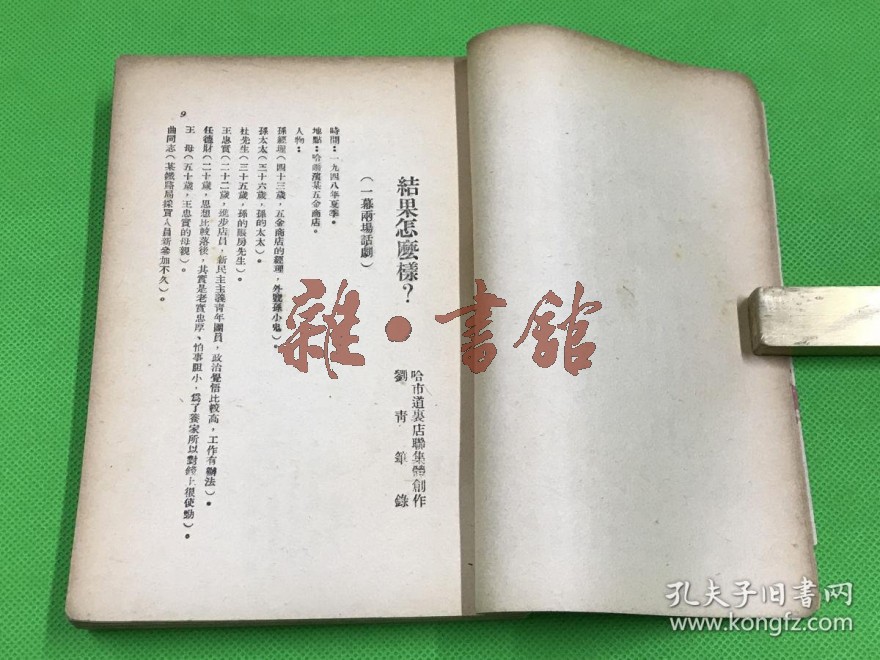 哈市道裏店聯集體創作
劉青筆錄
結果怎麼樣？
（一幕兩場話劇）
時間：一九四八年夏季。
地點：哈爾濱某五金商店。
人物：
孫經理（四十三歲，五金商店的經理，外號孫小鬼）。
孫太太（三十六歲，孫的太太）。
杜先生（三十五歲，孫的賬房先生）。
王忠實（二十二歲，進步店員，新民主主義青年團員，政治覺悟比較高，工作有辦法）。
任德財（二十歲，思想比較落後，其實是老實忠厚、怕事胆小，爲了養家所以對櫃上很使勁）。
王　母（五十歲，王忠實的母親）。
曲同志（某鐵路局採買人員新參加不久）。
9
雜·書館
孔夫子旧书网
www.kongfz.com